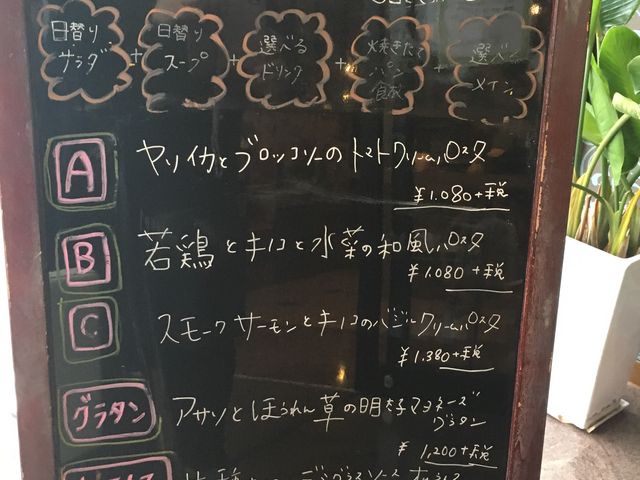 日替り サラダ + 日替り スープ + 選べる ドリンク + 焼きたて パン 食放 + 選べる メイン
A ヤリイカとブロッコリーのトマトクリームパスタ
¥1.080+税
B 若鶏とキノコと水菜の和風パスタ
¥1.080+税
C スモークサーモンとキノコのバジルクリームパスタ
¥1.380+税
グラタン アサリとほうれん草の明太子マヨネーズ
グラタン
¥1,200+税